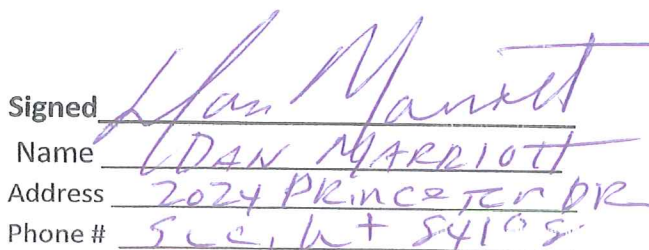 Signed Dan Marriott
Name DAN MARRIOTT
Address 2024 PRINCETON DR
Phone # SLC, Ut 84108